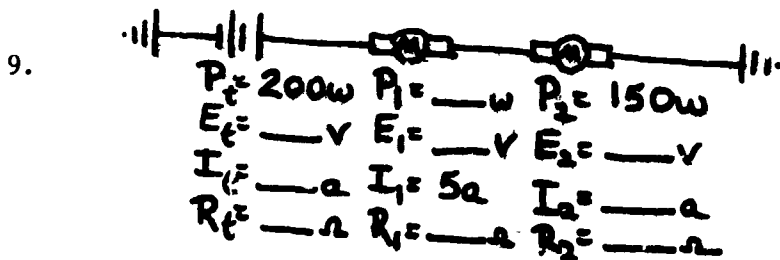 9.
M M
Pt= 200w P1= ___w P2= 150w
Et= ___V E1= ___V E2= ___V
It= ___a I1= 5a I2= ___a
Rt= ___Ω R1= ___Ω R2= ___Ω